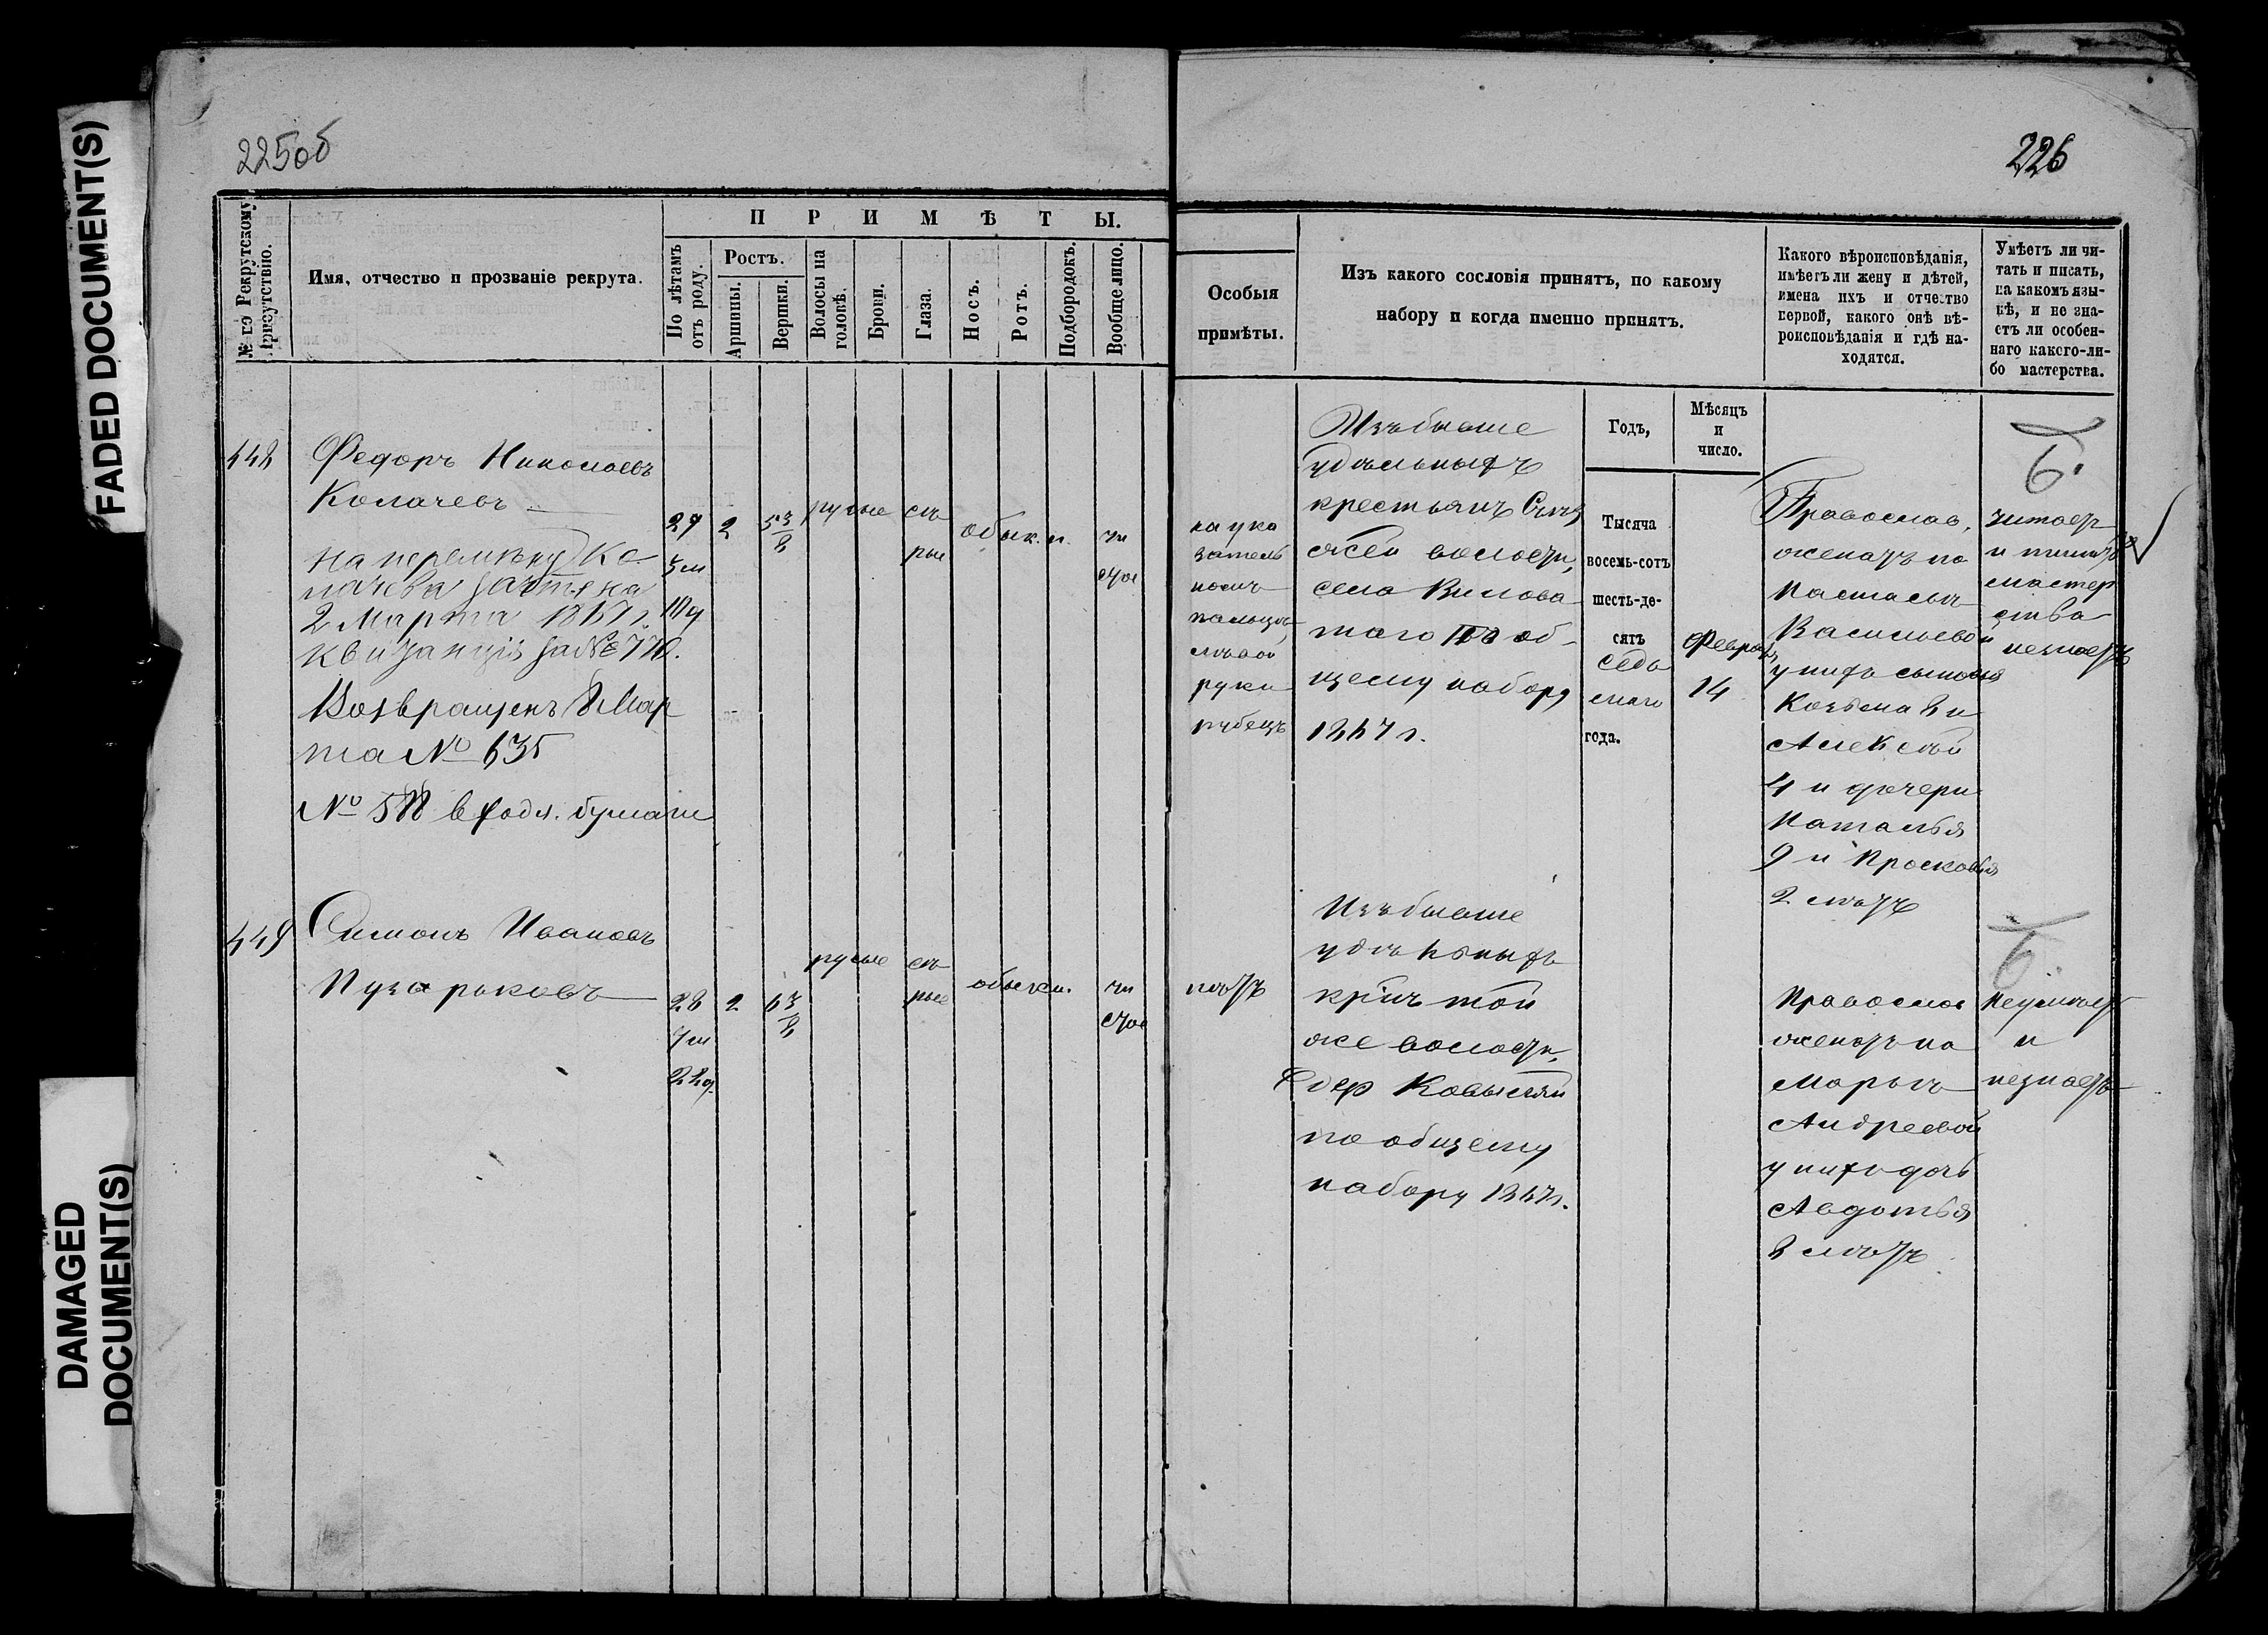 FADED DOCUMENT(S)
DAMAGED
DOCUMENT(S)
225об
226
№ по Рекрутскому
Присутствію.
Имя, отчество и прозваніе рекрута.
ПРИМѢТЫ.
По лѣтамъ
отъ роду.
Ростъ.
Аршины.
Вершки.
Волосы на
головѣ.
Брови.
Глаза.
Носъ.
Ротъ.
Подбородокъ.
Вообще лицо.
Особыя
примѣты.
Изъ какого сословія принятъ, по какому
набору и когда именно принятъ.
Какого вѣроисповѣданія,
имѣетъ ли жену и дѣтей,
имена ихъ и отчество
первой, какого онѣ вѣ-
роисповѣданія и гдѣ на-
ходятся.
Умѣетъ ли чи-
тать и писать,
на какомъ язы-
кѣ, и не зна-
етъ ли особен-
наго какого-ли-
бо мастерства.
Годъ,
Мѣсяцъ
и
число.
448
Федоръ Николаевъ
Колачевъ
на перемѣну Ко
лачева зачтена
2 Марта 1867 г.
квитанція за №
Возвращенъ 8 Мар
та № 635
№ в ходя. бумаги
27
5 м
2
5 3/8
русые
сѣ
рые
обыкн.
чи
стое
на ука
затель
номъ
пальцѣ
лѣвой
руки
рубецъ
Изъ бывше
удѣльныхъ
крестьянъ
жей волости,
села Вилова
таго По об
щему набору
1867 г.
Тысяча
восемь-сотъ
шесть-де-
сятъ
седь
маго
года.
Февраля
14
Православ.
женатъ на
Настасьѣ
Васильевой
у нихъ сыновья
Козьма 8 и
Алексѣй
4 и дочери
Наталья
9 и Просковья
2 лѣтъ
Б.
читаетъ
и пишетъ
мастер
ства
незнаетъ
449
Симонъ Ивановъ
Пузарьковъ
28
7 м
22 д.
2
6 3/8
русые
сѣ
рые
обыкн.
чи
стое
нѣтъ
Изъ бывше
удѣльныхъ
крнъ той
же волости,
дер
по общему
набору 1867 г.
Православ
женатъ на
Марьѣ
Андреевой
у нихъ дочь
Авдотья
8 лѣтъ
Б.
Неумѣетъ
и
незнаетъ